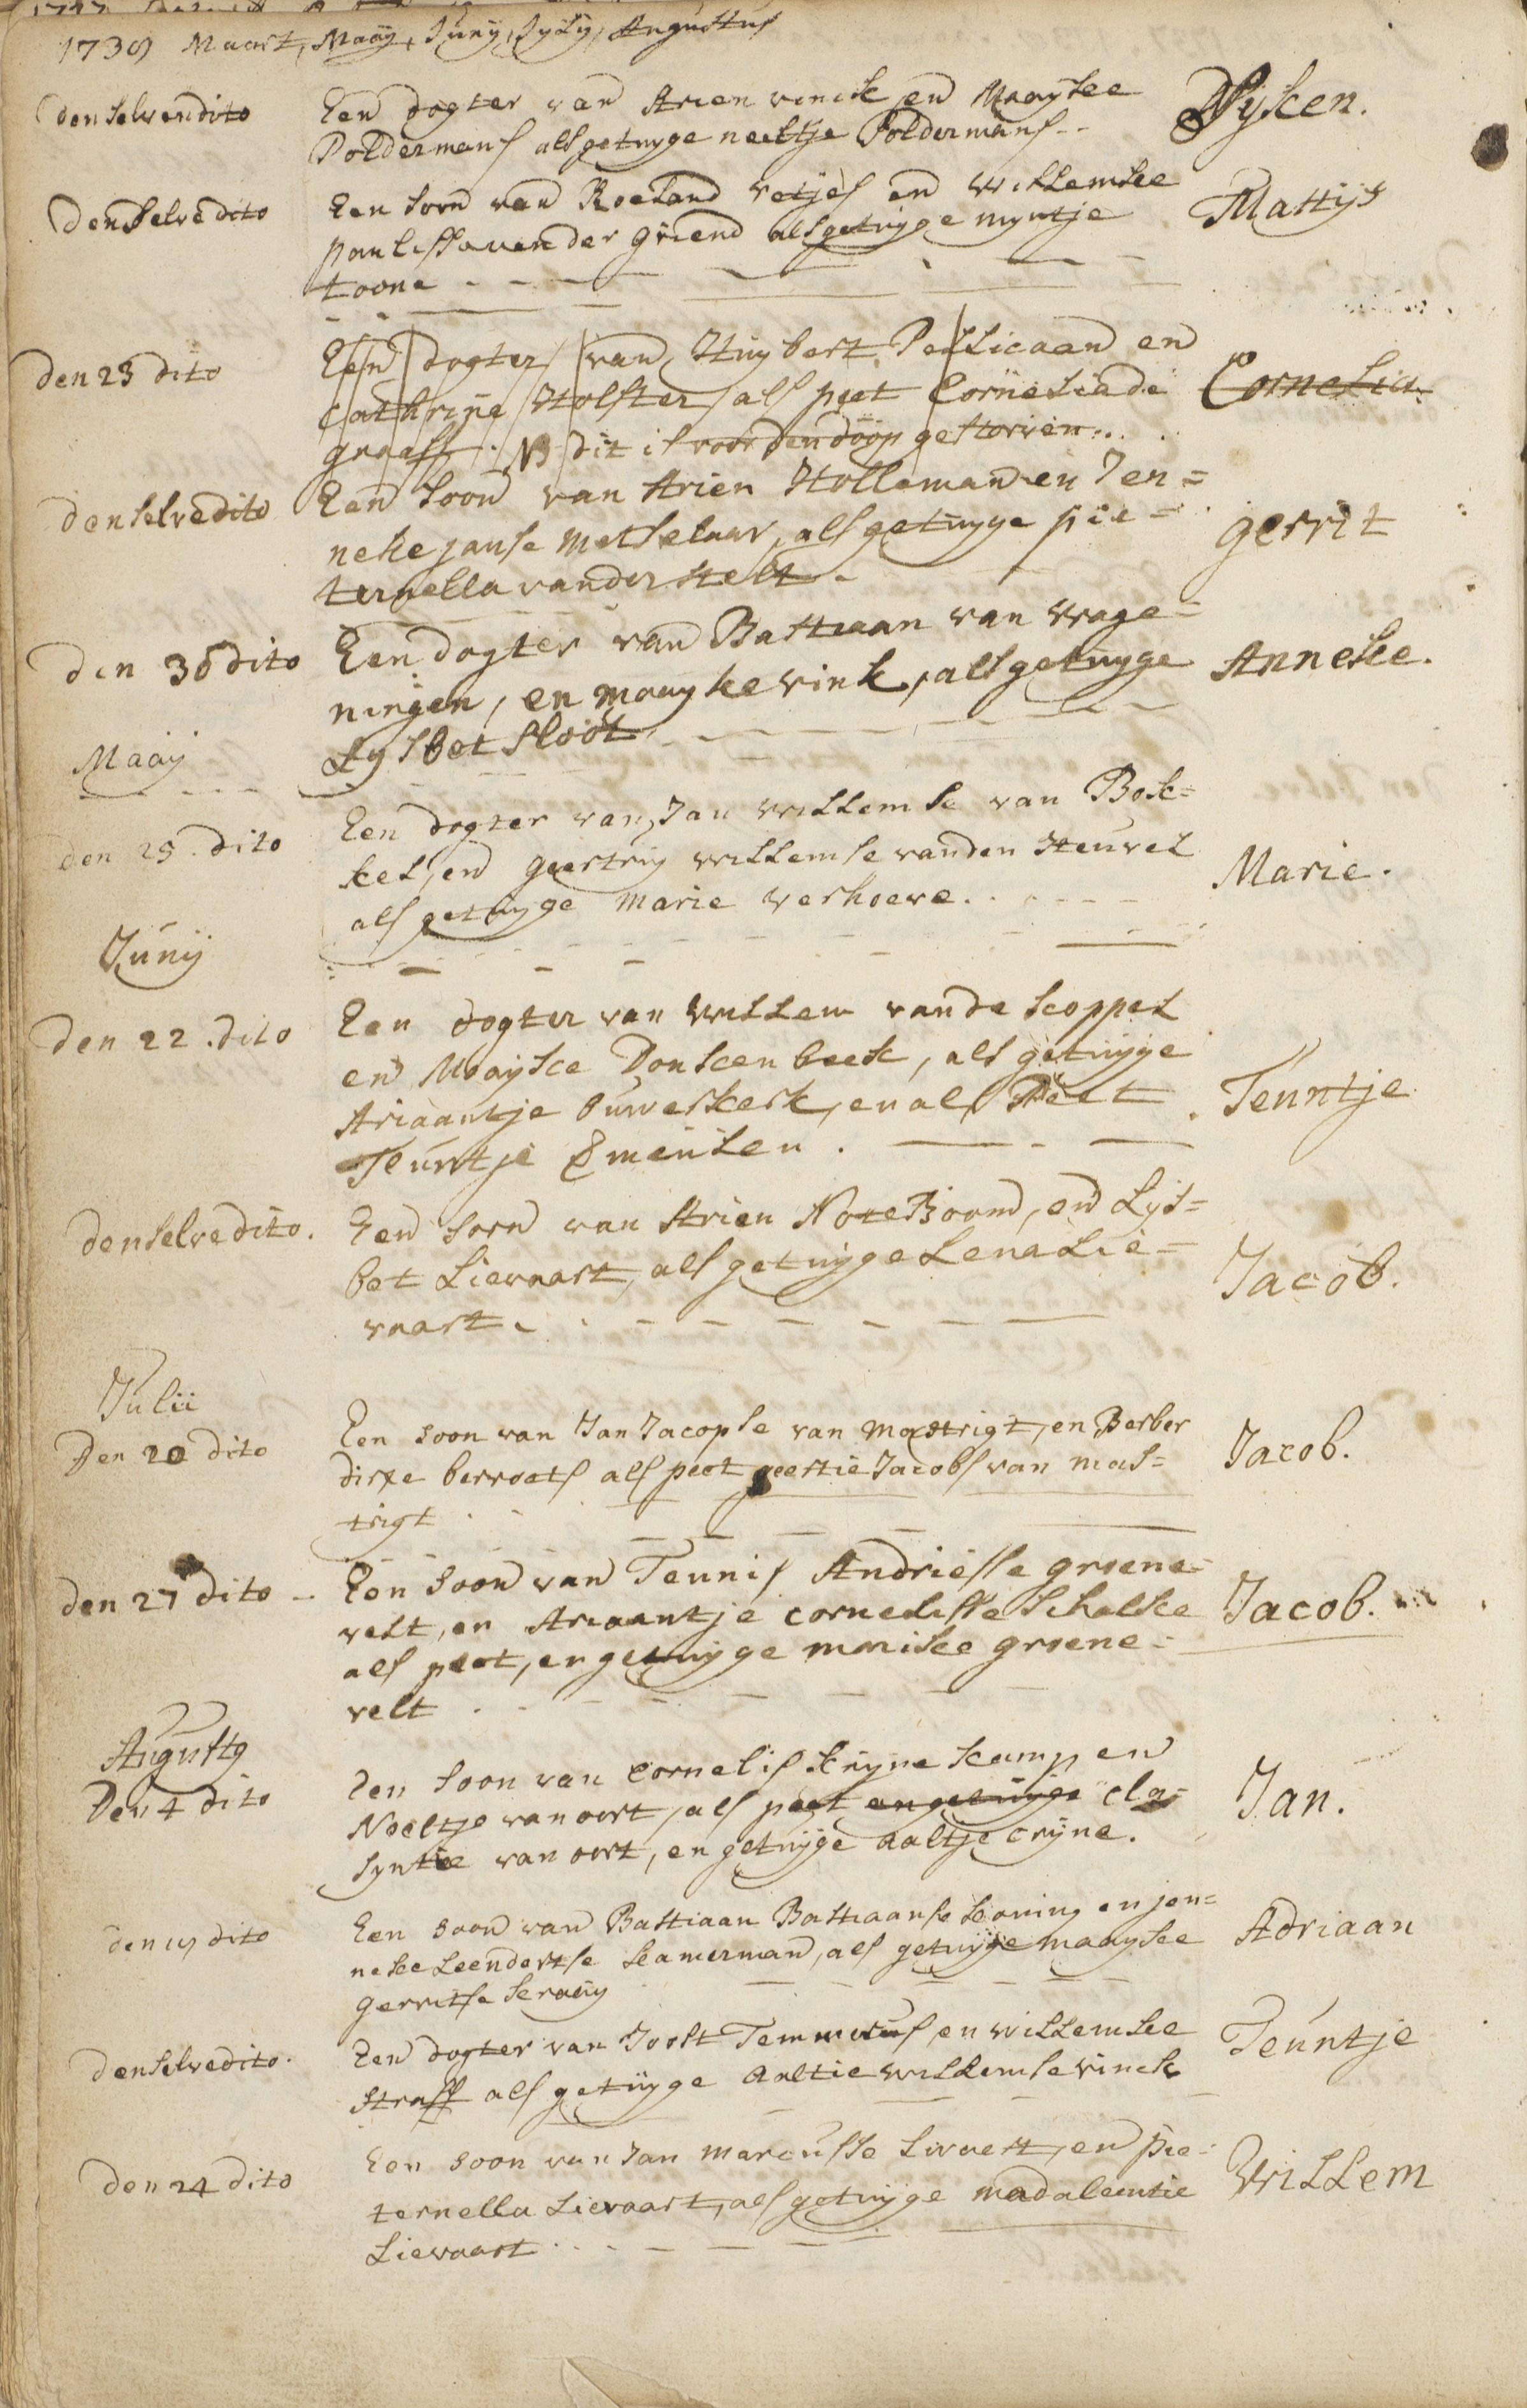 1739 Maart, Maaij, Junij, Julij, Augustus
den selven dito Een dogter van Arien vinck en Maayke Dyken.
Poldermans als getuyge neeltje Poldermans
den selve dito Een soon van Roeland vetjes en willemke Mattijs
paulisse vander griend als getuyge myntje
toone
den 23 dito Een dogter van Huybert Pellicaan en
Cathryne Holster als peet Cornelia de Cornelia
graaff. NB dit is voor den doop gestorven
den selve dito Een Soon van Arien Holleman en Jen=
neke janse metselaar, als getuyge pie= gerrit
ternella vander stelt
den 30 dito Een dogter van Bastiaan van wage= Anneke.
ningen, en maayke vink, als getuyge
Lysbet Sloot
Maaij
den 25 dito Een dogter van Jan willemse van Bok=
kel, en geertruy willemse vanden Heuvel Marie.
als getuyge marie verhoeve.
Junij
den 22. dito Een dogter van willem vande koppel
en Maayke Donkenbeek, als getuyge
Ariaantje Ouwerkerk, en als Peet Teuntje
Teuntje
den selve dito. Een soon van Arien Noteboom, en Lys=
bet Lievaart, als getuyge Lena Lie= Jacob.
vaart.
Julii
Den 20 dito Een soon van Jan Jacopse van mastrigt, en Berber Jacob.
dirxe berroets als peet geertie Jacobs van mas=
trigt
den 27 dito Een soon van Teunis Andriesse groene=
velt, en Ariaantje cornelisse schalke Jacob.
als peet, en getuyge marike groene=
velt
Augusty
Den 4 dito Een soon van Cornelis kryne kamp en
Neeltje van oort, als peet en getuyge cla= Jan.
syntie van oort, en getuyge aaltje cryne.
den 19 dito Een soon van Bastiaan Bastiaanse koning en jen= Adriaan
neke Leendertse kamerman, als getuyge maayke
gerritse
den selve dito. Een dogter van Joost en willemke Teuntje
straff als getuyge Aaltie willemse vinck
den 24 dito Een soon van Jan marcusse Livaert, en pie= Willem
ternella Lievaart, als getuyge madaleentie
Lievaart